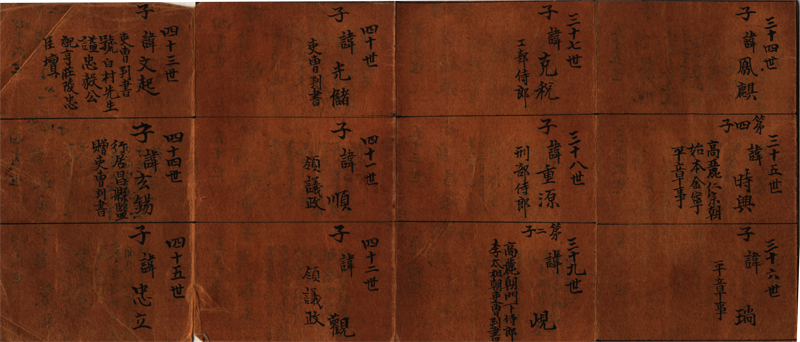 三十四世
子 諱 鳳麒
三十五世
第四子 諱 時興
高麗仁宗朝
始本金寧
平章事
三十六世
子 諱 瑞
平章事
三十七世
子 諱 克稅
工部侍郎
三十八世
子 諱 重源
刑部侍郎
三十九世
第二子 諱 峴
高麗朝門下侍郎
李太祖朝吏曹判書
四十世
子 諱 光儲
吏曹判書
四十一世
子 諱 順
領議政
四十二世
子 諱 觀
領議政
四十三世
子 諱 文起
吏曹判書
號白村先生
諡忠毅公
配享莊陵忠
臣壇
四十四世
子 諱 玄錫
行居昌縣監
贈吏曹判書
四十五世
子 諱 忠立